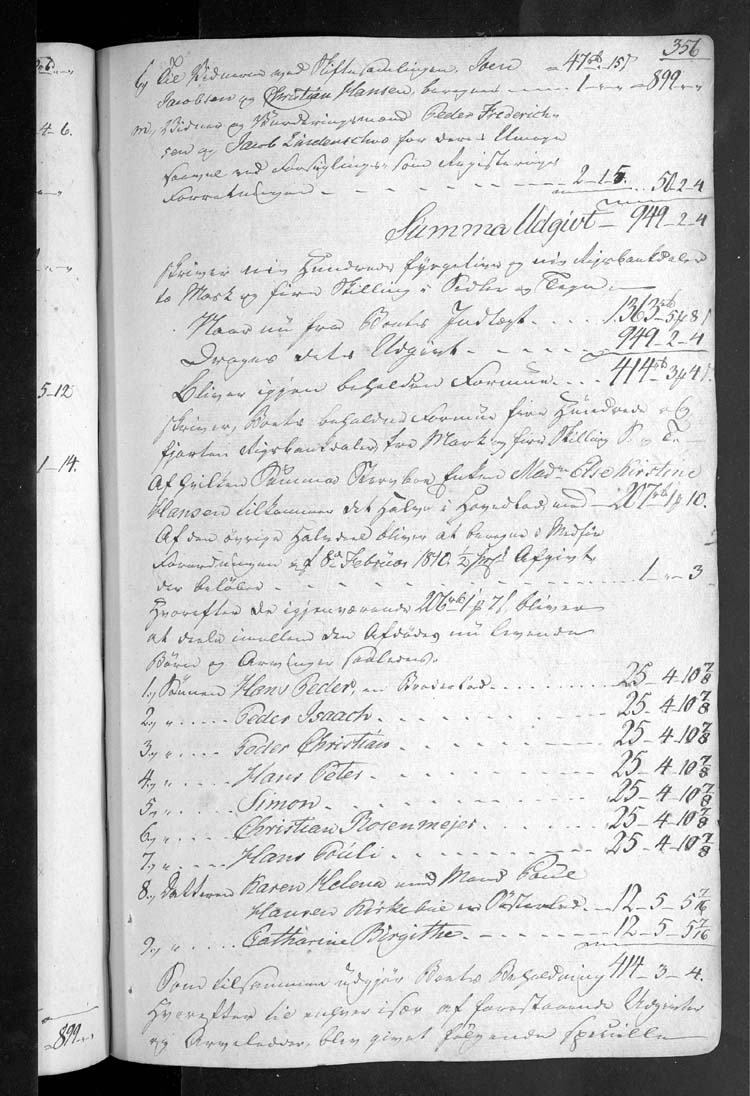 356
l, Til Vidnerne ved Skiftesamlingen, Joen — 47 rb — 15 s
Jacobsen og Christian Hansen, beregnes — 1 — „ — 899 — „ — „
m, Vidner og Vurderingsmænd Peder Friderich-
sen og Jacob Lindenschou for deres Umage
saavel ved Forseglings- som Registerings
Forretningen — — — 2 — 1 — 5. 50 — 2 — 4
Summa Udgivt — 949 — 2 — 4
skriver nie Hundrede fyrgetive og nie Rigsbankdaler
to Mark og fire Skilling i Sedler og Tegn.
Naar nu fra Boets Indtægt . . . . 1363 rb — 5 — 8
Drages dets Udgivt — — — 949 — 2 — 4
Bliver igjen beholden Formue . . . 414 rb 3 4
skriver, Boets beholdne Formue fire Hundrede og
fjorten Rigsbankdaler, tre Mark og fire Skilling S. og T.
Af hvilken Summa Sterboe Enken Mad Else Kirstine
Hansen tilkommer det Halve i Hovedlod med — 207 rb 1 10.
Af den øvrige Halvdeel bliver at beregne i Medfør
Forordningen af 8 Februar 1810. 1/2 pro Afgivt
der beløber — — — 1 — „ — 3
Hvorefter de igjenværende 206 rb 1 7 bliver
at deele imellem den Afdødes nu levende
Børn og Arvinger saaledes.
1., Sønnen Hans Peder, en Broderlod . . . . 25 — 4 — 10 7/8
2., „ . . . . Peder Isaach . . . . 25 — 4 — 10 7/8
3., „ . . . . Peder Christian . . . . 25 — 4 — 10 7/8
4., „ . . . . Hans Peter . . . . 25 — 4 — 10 7/8
5., „ . . . . Simon . . . . 25 — 4 — 10 7/8
6., „ . . . . Christian Rosenmejer . . . . 25 — 4 — 10 7/8
7., „ . . . . Hans Pouli . . . . 25 — 4 — 10 7/8
8., Datteren Karen Helena med Mand Poul
Hansen Kirkebie en Søsterlod — 12 — 5 — 5 7/16
9., „ . . . . Catharine Birgithe — 12 — 5 — 5 7/16
Som tilsammen udgjør Boets Beholdning 414 — 3 — 4.
Hvorefter til enhver især af forestaaende Udgivter
og Arvelodder, blev givet følgende specielle
4 6.
5 — 12
1 — 14.
899 — „ — „